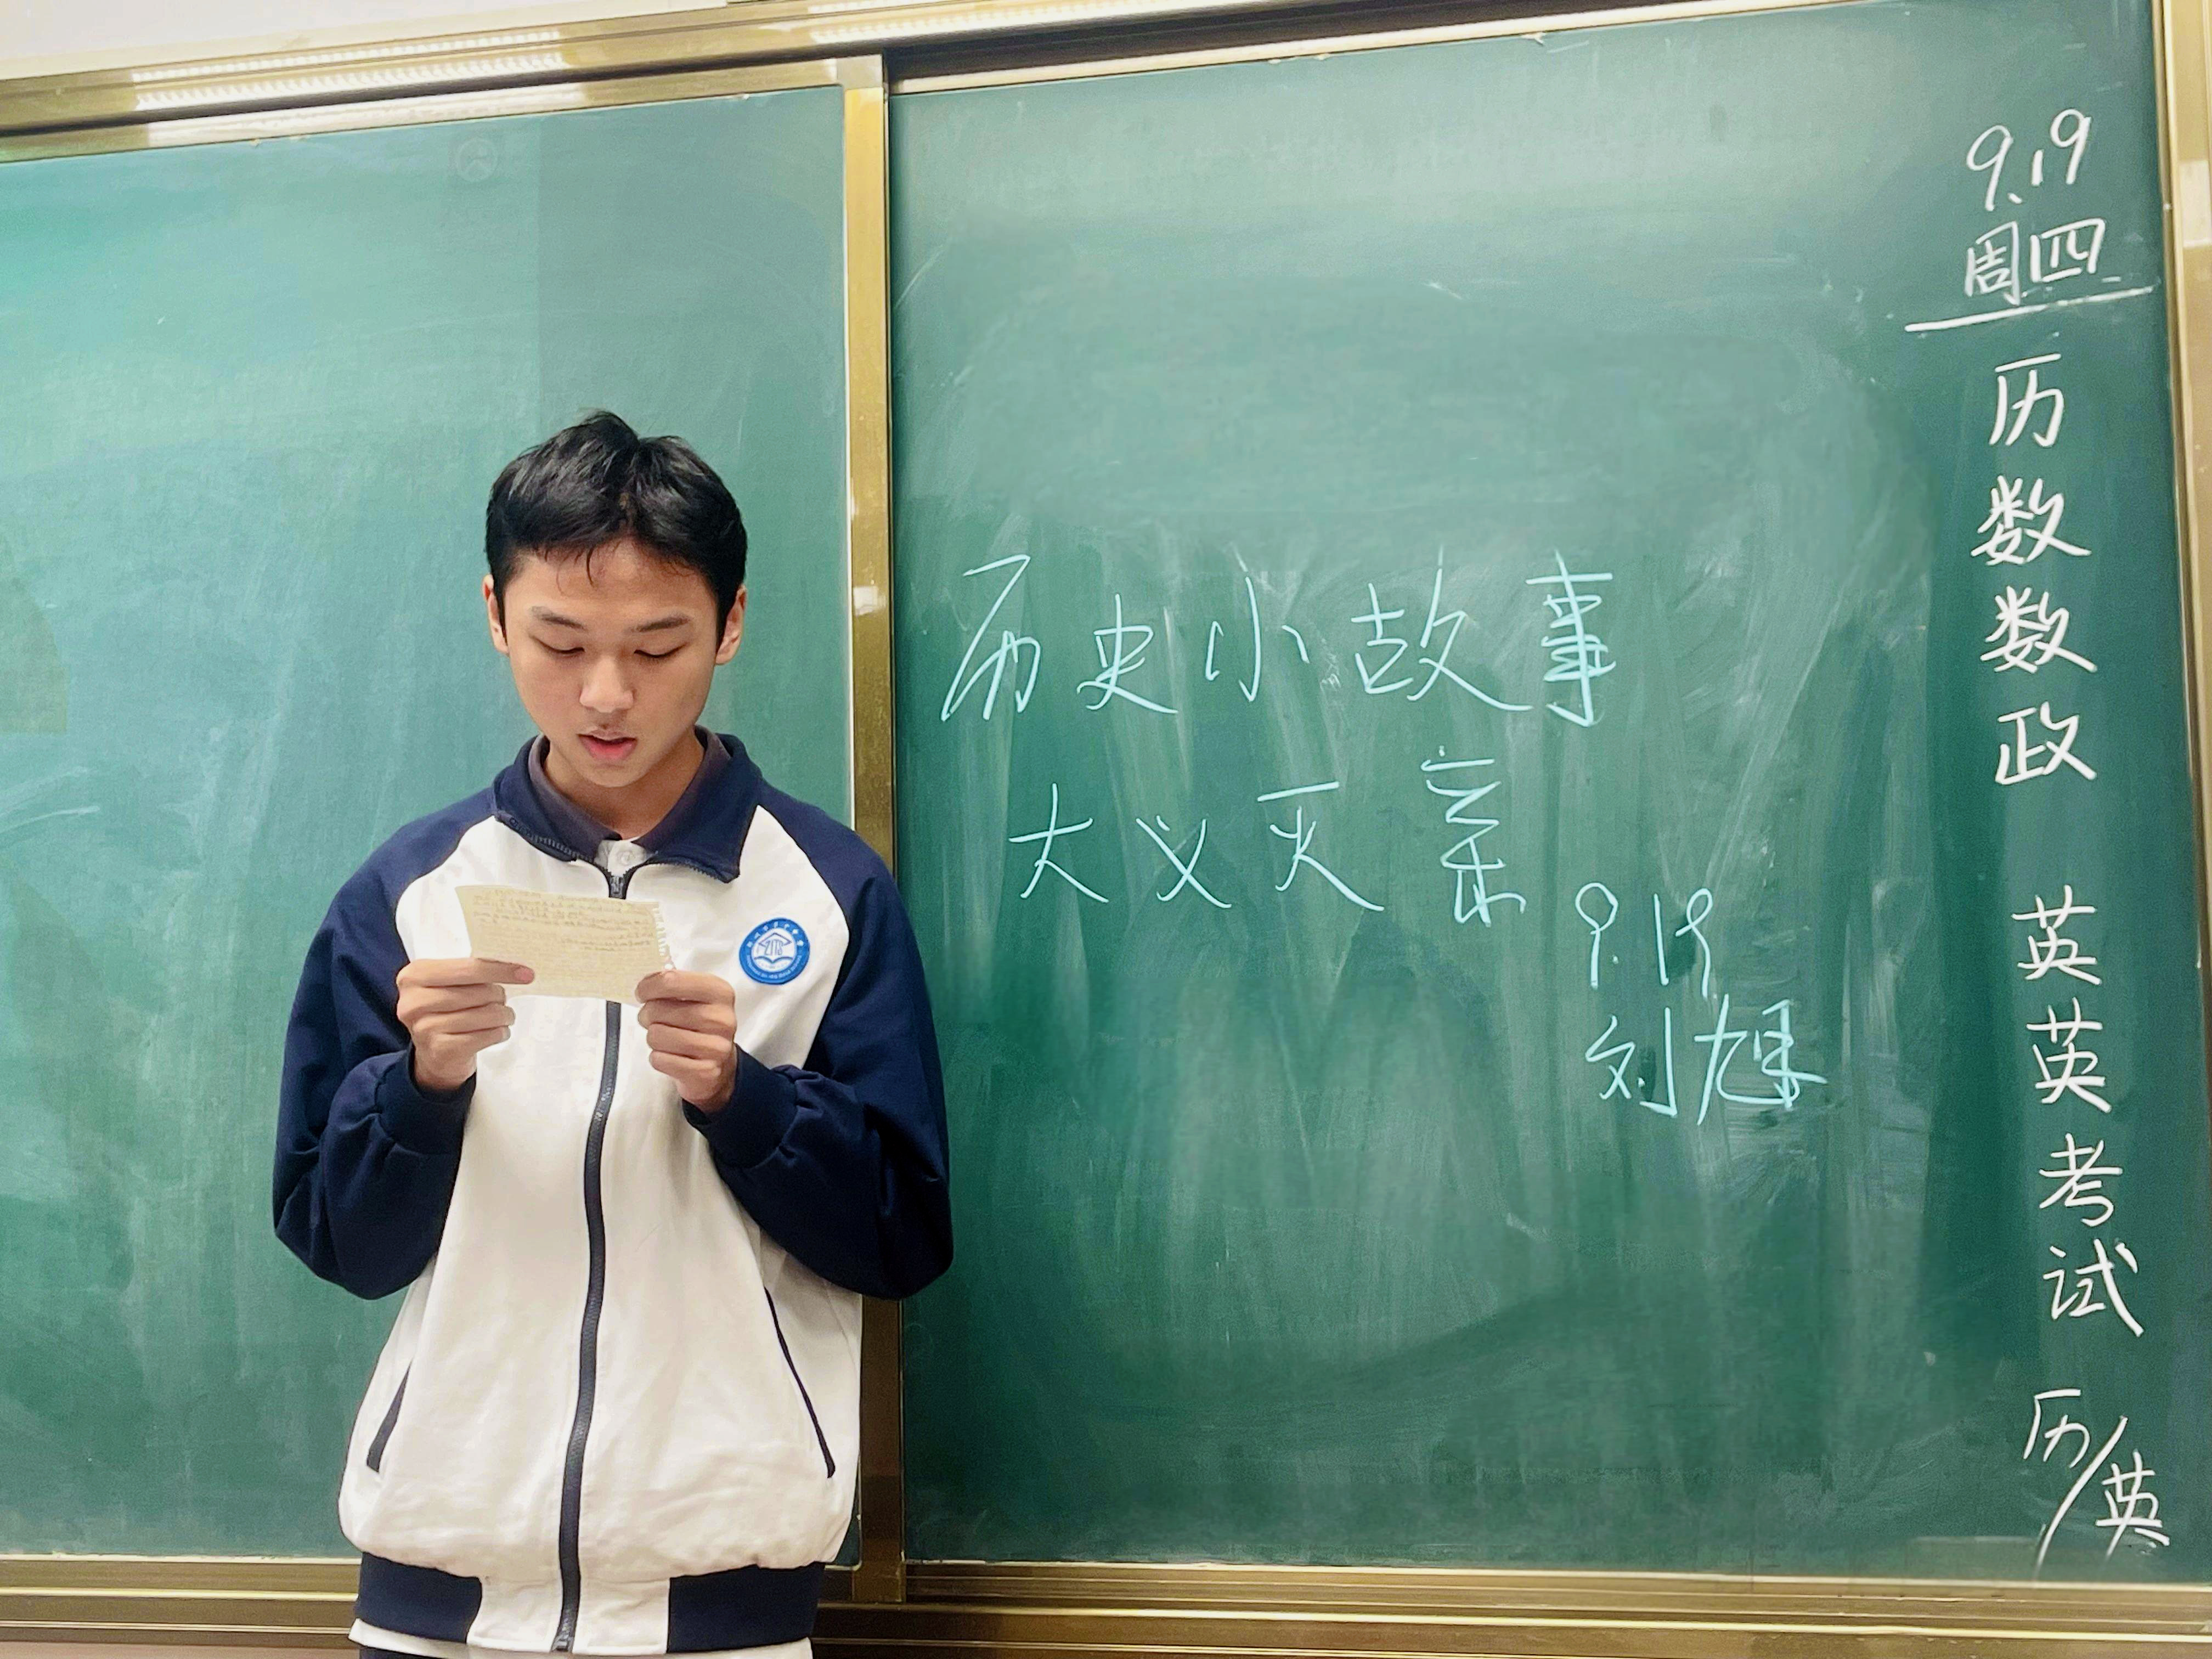 历史小故事
大义灭亲
9.19
刘旭
9.19
周四
历
数
数
政
英
英
考
试
历/英
ZITS